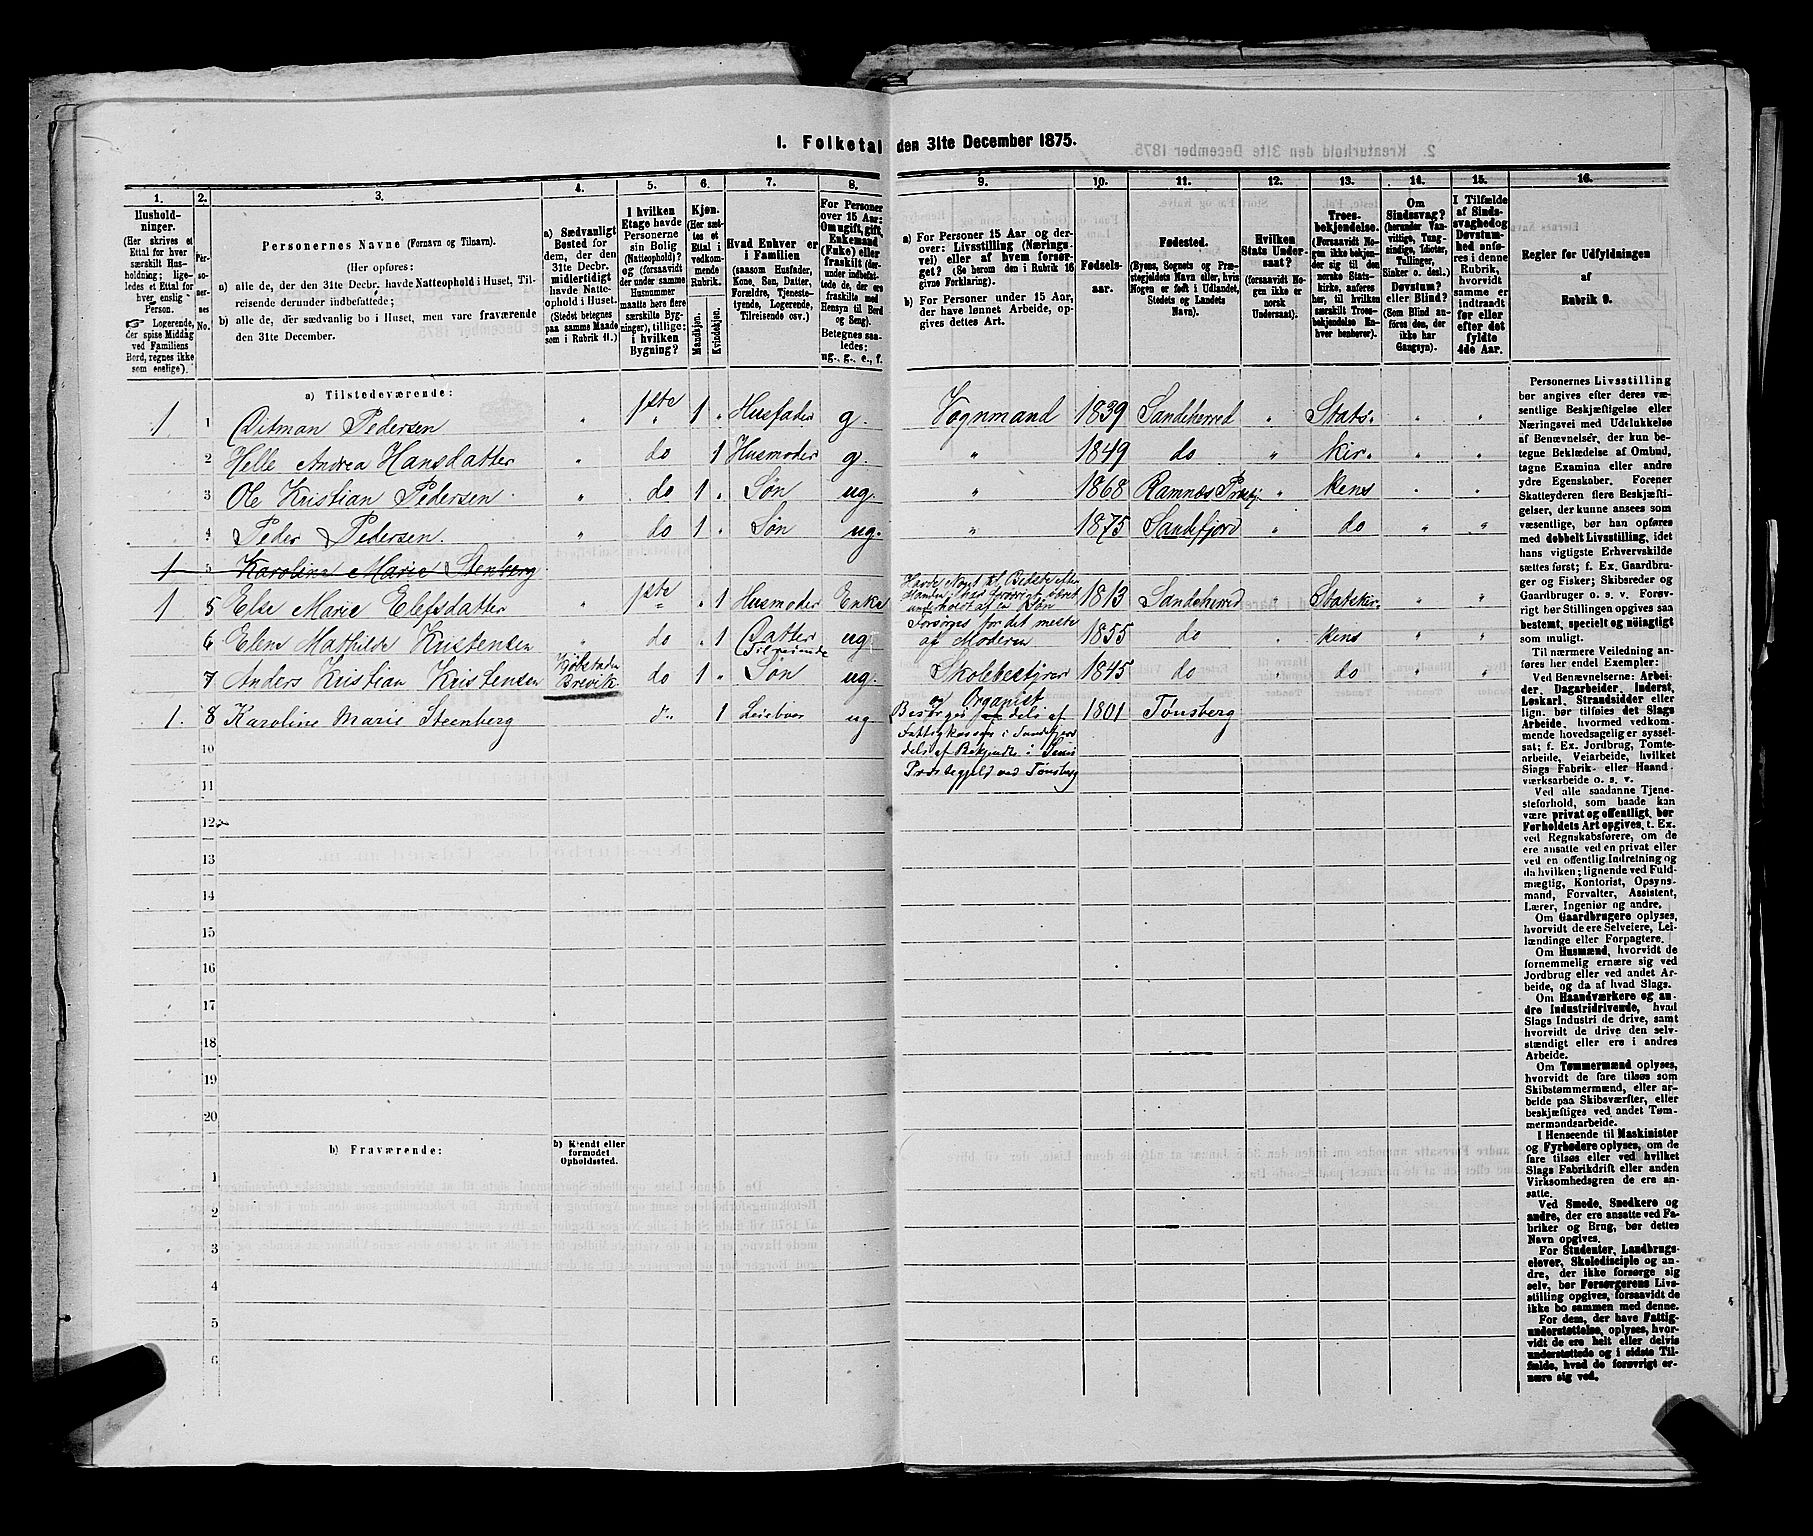 1. Folketal den 31te December 1875.
1.
Hushold-
ninger.
(Her skrives et
Ettal for hver
særskilt Hus-
holdning; lige-
ledes et Ettal for
hver enslig
Person.
☞ Logerende,
der spise Middag
ved Familiens
Bord, regnes ikke
som enslige).
2.
Per-
so-
ner-
nes
No.
3.
Personernes Navne (Fornavn og Tilnavn).
(Her opføres:
a) alle de, der den 31te Decbr. havde Natteophold i Huset, Til-
reisende derunder indbefattede;
b) alle de, der sædvanlig bo i Huset, men vare fraværende
den 31te December.
4.
a) Sædvanligt
Bosted for
dem, der den
31te Decbr.
midlertidigt
havde Natte-
ophold i Huset.
(Stedet betegnes
paa samme Maade
som i Rubrik 11.)
5.
I hvilken
Etage havde
Personerne
sin Bolig
(Natteophold)?
og (forsaavidt
der under samme
Husnummer
maatte høre flere
særskilte Byg-
ninger), tillige:
i hvilken
Bygning?
6.
Kjøn.
(Her sæt-
tes et
Ettal i
vedkom-
mende
Rubrik.
Mandkjøn.
Kvindekjøn.
7.
Hvad Enhver er
i Familien
(saasom Husfader,
Kone, Søn, Datter,
Forældre, Tjeneste-
tyende, Logerende,
Tilreisende osv.)
8.
For Personer
over 15 Aar:
Om ugift, gift,
Enkemand
(Enke) eller
fraskilt (der-
under indbefat-
tede de, der ere
fraskilte med
Hensyn til Bord
og Seng).
Betegnes saa-
ledes:
ug., g., e., f.
9.
a) For Personer 15 Aar og der-
over: Livsstilling (Nærings-
vei) eller af hvem forsør-
get? (Se herom den i Rubrik 16
givne Forklaring).
b) For Personer under 15 Aar,
der have lønnet Arbeide, op-
gives dettes Art.
10.
Fødsels-
aar.
11.
Fødested.
(Byens, Sognets og Præ-
stegjeldets Navn eller, hvis
Nogen er født i Udlandet,
Stedets og Landets
Navn).
12.
Hvilken
Stats Under-
saat?
(forsaavidt No-
gen ikke er
norsk
Undersaat).
13.
Troes-
bekjendelse.
(Forsaavidt No-
gen ikke bekjen-
der sig til den
norske Stats-
kirke, anføres
her, til hvilken
særskilt Troes-
bekjendelse En-
hver henhører).
14.
Om
Sindssvag?
(herunder Van-
vittige, Tung-
sindige, Idioter,
Tullinger,
Sinker o. desl.)
Døvstum?
eller Blind?
(Som Blind an-
føres den, der
ikke har
Gangsyn).
15.
I Tilfælde
af Sinds-
svaghed og
Døvstum-
hed anfø-
res i denne
Rubrik,
hvorvidt
samme er
indtraadt
før eller
efter det
fyldte
4de Aar.
16.
Regler for Udfyldningen
af
Rubrik 9.
a) Tilstedeværende:
1 1 Ditman Pedersen " 1ste 1 " Husfader g. Vognmand 1839 Sandeherred " Stats- " "
2 Helle Andrea Hansdatter " do 1 Husmoder g. " 1849 do " kir- " "
3 Ole Kristian Pedersen " do 1 " Søn ug. " 1868 Ramnæs Præstgj. " kens " "
4 Peder Pedersen " do 1 " Søn ug. " 1875 Sandefjord " do " "
1 5 Karoline Marie Stenberg
1 5 Else Marie Elefsdatter " 1ste " 1 Husmoder Enke underholdt af en Søn 1813 Sandeherred " Statskir- " "
6 Elene Mathilde Kristensen " do " 1 Datter ug. Forsørges for det meste af Moderen 1855 do " kens " "
7 Anders Kristian Kristensen Kjøbstaden Brevik do 1 " Tilreisende Søn ug. Skolebestyrer og Organist 1845 do " do " "
1 8 Karoline Marie Steenberg d" 1 ug 1801 Tønsberg
Fattigkassen i Sandefjord
dels af Bekjendte i Sems
Præstegjeld ved Tønsberg
10
11
12
13
14
15
16
17
18
19
20
b) Fraværende:
b) Kjendt eller
formodet
Opholdssted.
1
2
3
4
5
6
Personernes Livsstilling
bør angives efter deres væ-
sentlige Beskjæftigelse eller
Næringsvei med Udelukkelse
af Benævnelser, der kun be-
tegne Beklædelse af Ombud,
tagne Examina eller andre
ydre Egenskaber. Forener
Skatteyderen flere Beskjæfti-
gelser, der kunne ansees som
væsentlige, bør han opføres
med dobbelt Livsstilling, idet
hans vigtigste Erhvervskilde
sættes først; f. Ex. Gaardbru-
ger og Fisker; Skibsreder og
Gaardbruger o. s. v. Forøv-
rigt bør Stillingen opgives saa
bestemt, specielt og nöiagtigt
som muligt.
Til nærmere Veiledning an-
føres her endel Exempler:
Ved Benævnelserne: Arbei-
der, Dagarbeider, Inderst,
Løskarl, Strandsidder eller
lign. bør tilføies det Slags
Arbeide, hvormed vedkom-
mende hovedsagelig er syssel-
sat; f. Ex. Jordbrug, Tomte-
arbeide, Veiarbeide, hvilket
Slags Fabrik- eller Haand-
værksarbeide o. s. v.
Ved alle saadanne Tjene-
steforhold, som baade kan
være privat og offentligt, bør
Forholdets Art opgives, t. Ex.
ved Regnskabsførere, om de
ere ansatte ved en privat eller
ved en offentlig Indretning og
da hvilken; lignende ved Fuld-
mægtig, Kontorist, Opsyns-
mand, Forvalter, Assistent,
Lærer, Ingeniør og andre.
Om Gaardbrugere oplyses,
hvorvidt de ere Selveiere, Lei-
lændinge eller Forpagtere.
Om Husmænd, hvorvidt de
fornemmelig ernære sig ved
Jordbrug eller ved andet Ar-
beide, og da af hvad Slags.
Om Haandværkere og an-
dre Industridrivende, hvad
Slags Industri de drive, samt
hvorvidt de drive den selv-
stændigt eller ere i andres
Arbeide.
Om Tømmermænd oplyses,
hvorvidt de fare tilsøs som
Skibstømmermænd, eller ar-
beide paa Skibsværfter, eller
beskjæftiges ved andet Tøm-
mermandsarbeide.
I Henseende til Maskinister
og Fyrbødere oplyses, om de
fare tilsøs eller ved hvilket
Slags Fabrikdrift eller anden
Virksomhedsgren de ere an-
satte.
Ved Smede, Snedkere og
andre, der ere ansatte ved Fa-
briker og Brug, bør dettes
Navn opgives.
For Studenter, Landbrugs-
elever, Skoledisciple og an-
dre, der ikke forsørge sig
selv, bør Forsørgerens Livs-
stilling opgives, forsaavidt de
ikke bo sammen med denne.
For dem, der have Fattig-
understøttelse, oplyses, hvor-
vidt de ere helt eller delvis
understøttede og i sidste Til-
fælde, hvad de forøvrigt er-
nære sig ved.